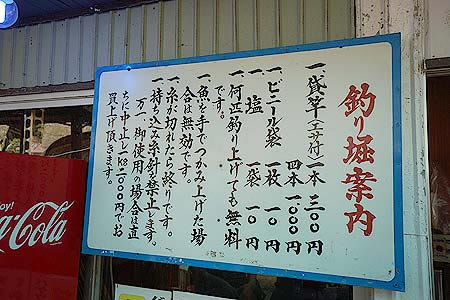 釣り堀案内
一、貸竿(エサ付)一本 三〇〇円
四本 一〇〇〇円
一、ビニール袋 一枚 一〇円
一、塩 一袋 一〇円
一、何匹釣り上げても無料
です。
一、魚を手でつかみ上げた場
合は無効です。
一、糸が切れたら終りです。
一、持ち込み糸針禁止します。
万一、御使用の場合は直
ちに中止し一kg二〇〇〇円でお
買上げ頂きます。
joy!
Coca-Cola